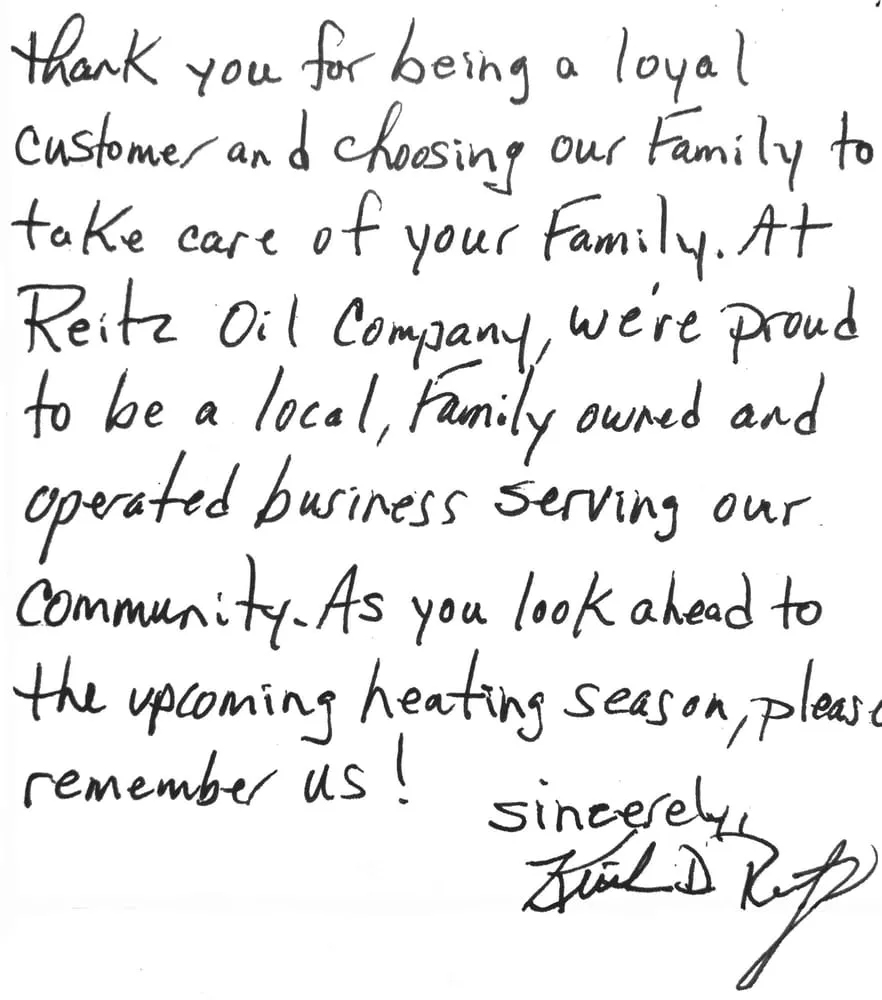 thank you for being a loyal
customer and choosing our Family to
take care of your Family. At
Reitz Oil Company, we're proud
to be a local, Family owned and
operated business serving our
Community. As you look ahead to
the upcoming heating season, please
remember us!
sincerely,
D